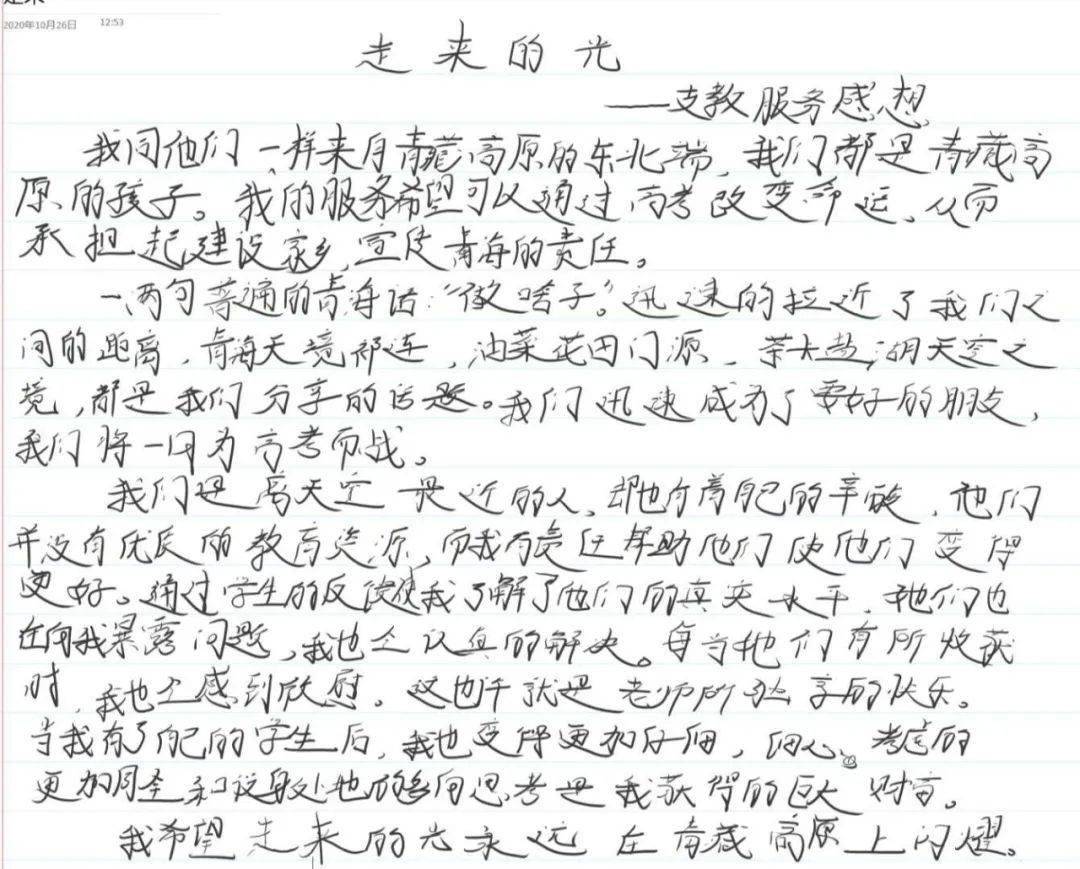 2020年10月26日 12:53
走来的光
——支教服务感想
我同他们一样来自青藏高原的东北端，我们都是青藏高
原的孩子。我的服务希望可以通过高考改变命运、从而
承担起建设家乡，宣传青海的责任。
一两句普通的青海话“做啥子”。迅速的拉近了我们之
间的距离，青海天境祁连，油菜花田门源，茶卡盐湖天空之
境，都是我们分享的话题。我们迅速成为了要好的朋友，
我们将一同为高考而战。
我们是离天空最近的人，却也有着自己的辛酸，他们
并没有优良的教育资源，而我有责任帮助他们使他们变得
更好。通过学生的反馈使我了解了他们的真实水平，他们也
在向我暴露问题，我也会认真的解决。每当他们有所收获
时，我也会感到欣慰。这也许就是老师所独享的快乐。
当我有了自己的学生后，我也变得更加仔细，细心、考虑的
更加周全和设身处地的多向思考是我获得的巨大财富。
我希望走来的光永远在青藏高原上闪耀。